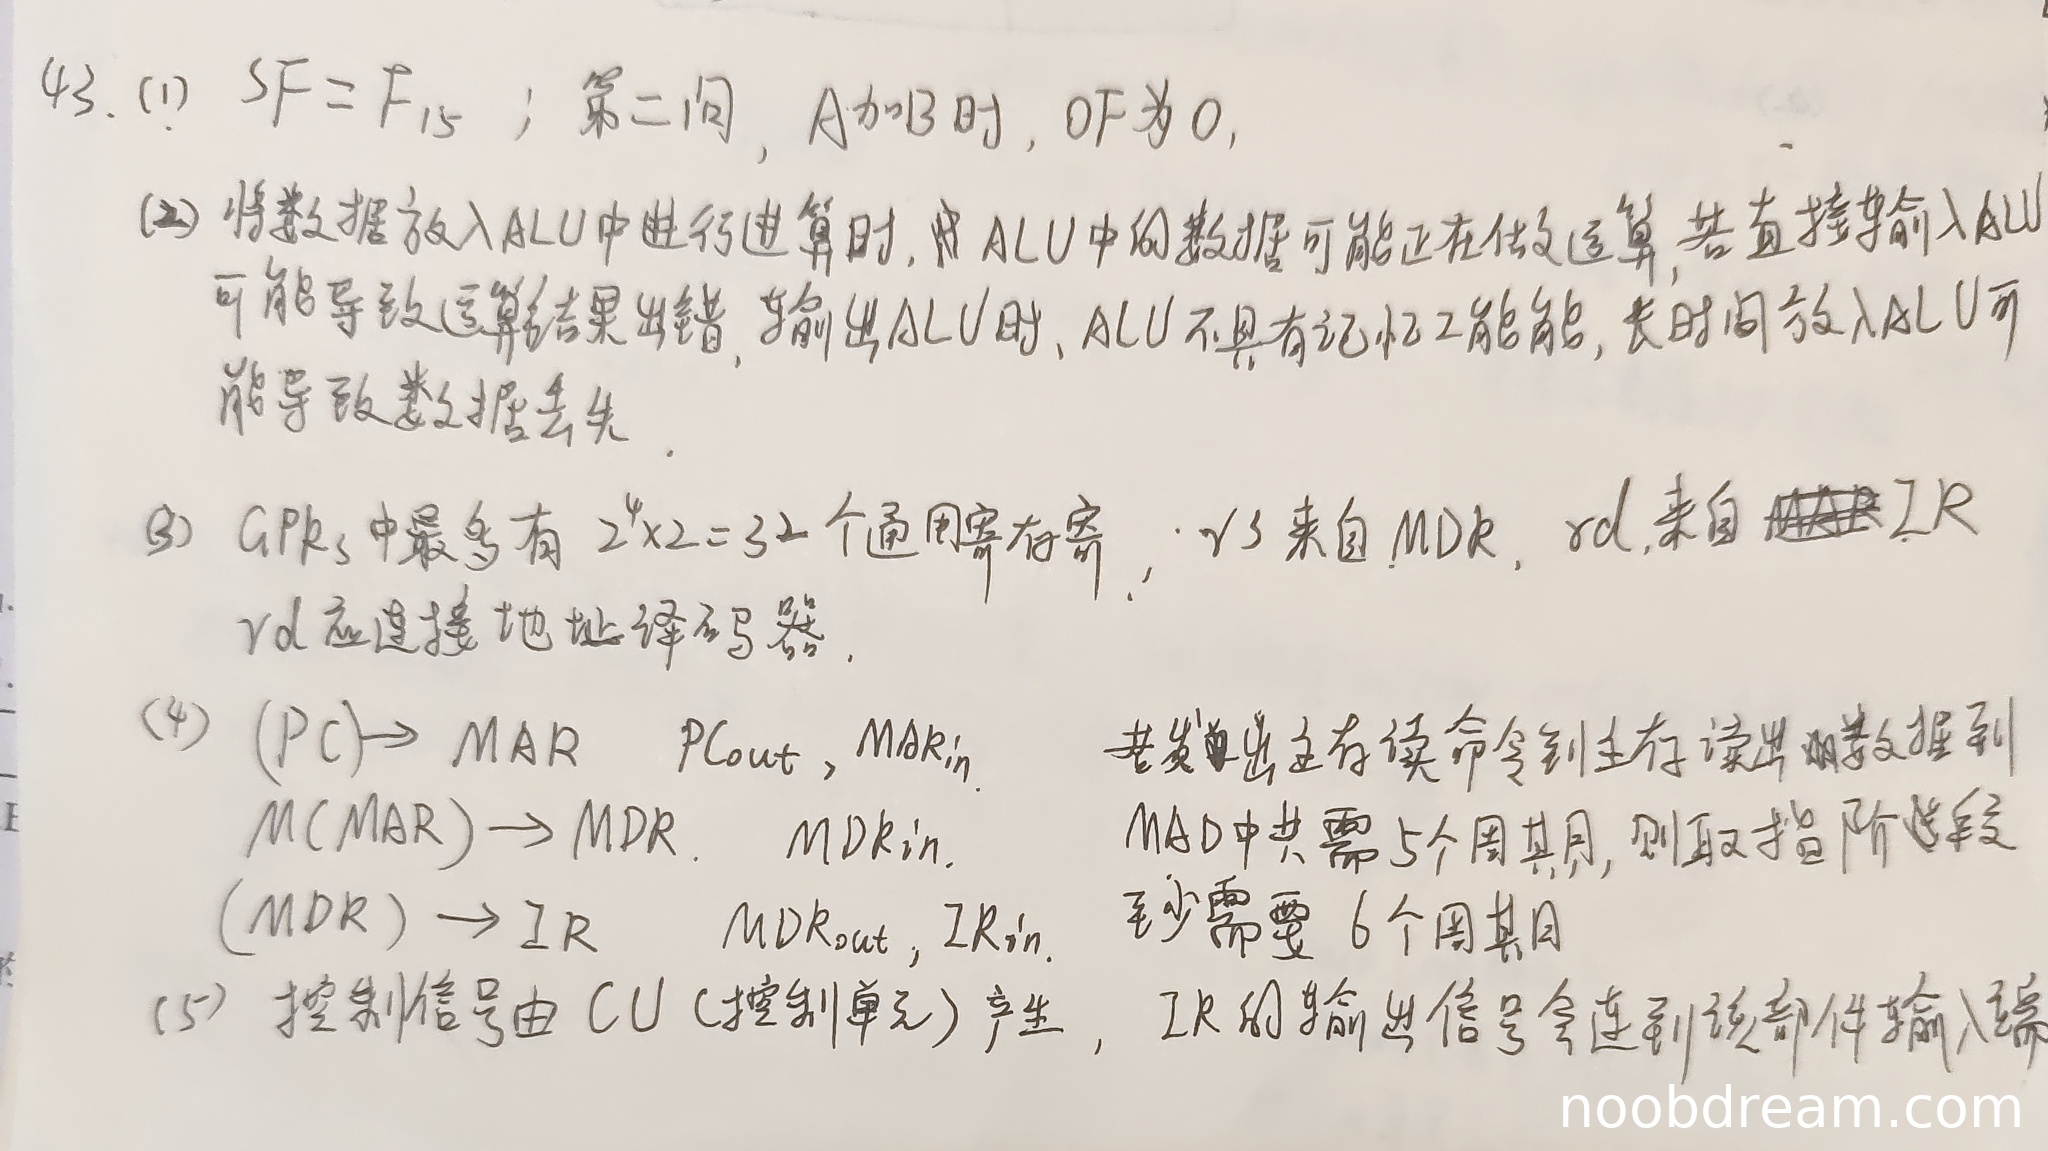 43.(1) SF=F15；第二问，A加B时，OF为0，
(2) 将数据放入ALU中进行进算时，ALU中的数据可能正在做运算，若直接输入ALU
可能导致运算结果出错，输出ALU时、ALU不具有记忆工能能，长时间放入ALU可
能导致数据丢失.
(3) GPRs中最多有 2⁴×2=32个通用寄存寄，rs来自MDR，rd来自 IR
rd应连接地址译码器.
(4) (PC)→MAR PCout，MARin. 发出主存读命令到主存读出数据到
M(MAR)→MDR. MDRin. MAD中共需5个周期，则取指阶段
(MDR)→IR MDRout，IRin. 至少需要6个周期
(5) 控制信号由CU(控制单元)产生，IR的输出信号会连到该部件输入端
noobdream.com